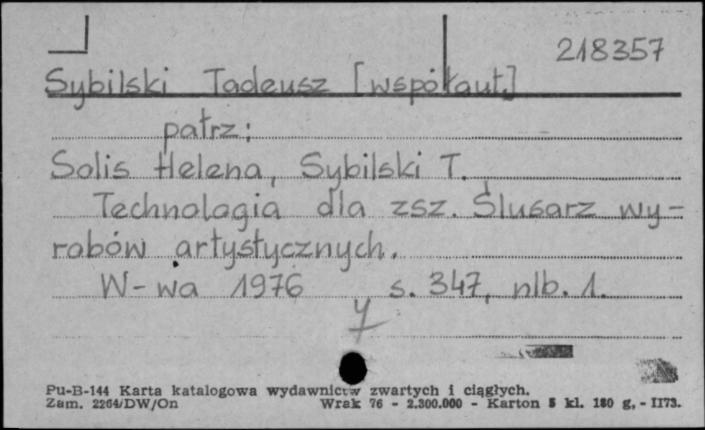 218357
Sybilski Tadeusz [współaut.]
patrz:
Solis Helena, Sybilski T.
Technologia dla zsz. Ślusarz wy-
robów artystycznych.
W-wa 1976 s. 347, nlb. 1.
Y
Pu-B-144 Karta katalogowa wydawnictw zwartych i ciągłych.
Zam. 2264/DW/On Wrak 76 - 2.300.000 - Karton 5 kl. 180 g. - II73.